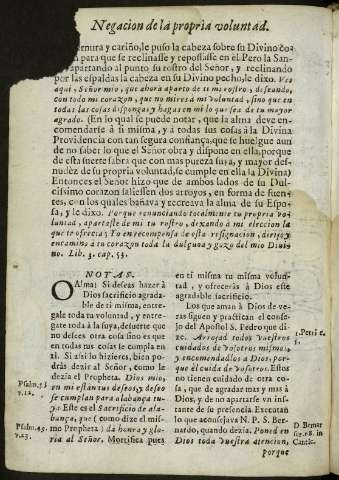 Negacion de la propria voluntad.
ernura y cariño, le puso la cabeza sobre su Divino co-
n para que se reclinasse y reposasse en el. Pero la San-
apartando al punto su rostro del Señor, y reclinando
por las espaldas la cabeza en su Divino pecho, le dixo. Ves
aqui, Señor mio, que ahora aparto de ti mi rostro, deseando,
con todo mi corazon, que no mires a mi voluntad, sino que en
todas las cosas dispongas y hagas en mi lo que sea de tu mayor
agrado. (En lo qual se puede notar, que la alma deve en-
comendarse à ti misma, y á todas sus cosas à la Divina
Providencia con tan segura confiança, que se huelgue aun
de no saber lo que el Señor obra y dispone en ella, porque
de esta suerte sabrá que con mas pureza suya, y mayor des-
nudèz de su propria voluntad, se cumple en ella la Divina)
Entonces el Señor hizo que de ambos lados de su Dul-
cissimo corazon saliessen dos arroyos, en forma de fuen-
tes, con los quales bañava y recreava la alma de su Espo-
sa, y le dixo. Porque renunciando totalmente tu propria vo-
luntad, apartaste de mi tu rostro, dexando à mi eleccion la
que te ofrecia; Yo en recompensa de esta resignacion, dirijo y
encamino à tu corazon toda la dulçura y gozo del mio Divi-
no. Lib. 3. cap. 53.
NOTAS.
O Alma! Si deseas hazer à
Dios sacrificio agrada-
ble de ti misma, entre-
gale toda tu voluntad, y entre-
gate toda à la suya, desuerte que
no desees otra cosa sino es que
en todas sus cosas se cumpla en
ti. Si assi lo hizieres, bien po-
dràs dezir al Señor, como le
dezia el Propheta. Dios mio,
en mi estàn tus deseos, y deseo
se cumplan para alabança tu-
ya. Este es el Sacrificio de ala-
bança, que (como dize el mis-
mo Propheta) da honra y glo-
ria al Señor. Mortifica pues
Psalm. 55
v. 12.
Psalm. 49.
v. 23.
en ti misma tu misma volun-
tad, y ofreceràs à Dios este
agradable sacrificio.
Los que aman à Dios de ve-
ras siguen y practican el conse-
jo del Apostol S. Pedro que di-
ze. Arrojad todos vuestros
cuidados de vosotros mismos,
y encomendadlos a Dios, por-
que el cuida de vosotros. Estos
no tienen cuidado de otra co-
sa, que de agradar mas y mas à
Dios, y de no apartarse un ins-
tante de su presencia. Executan
lo que aconsejava N. P. S. Ber-
nardo, quando dezia. Poned en
Dios toda vuestra atencion,
1. Petri c.
5.
D. Bernar
ser. 18. in
Cantic.
porque